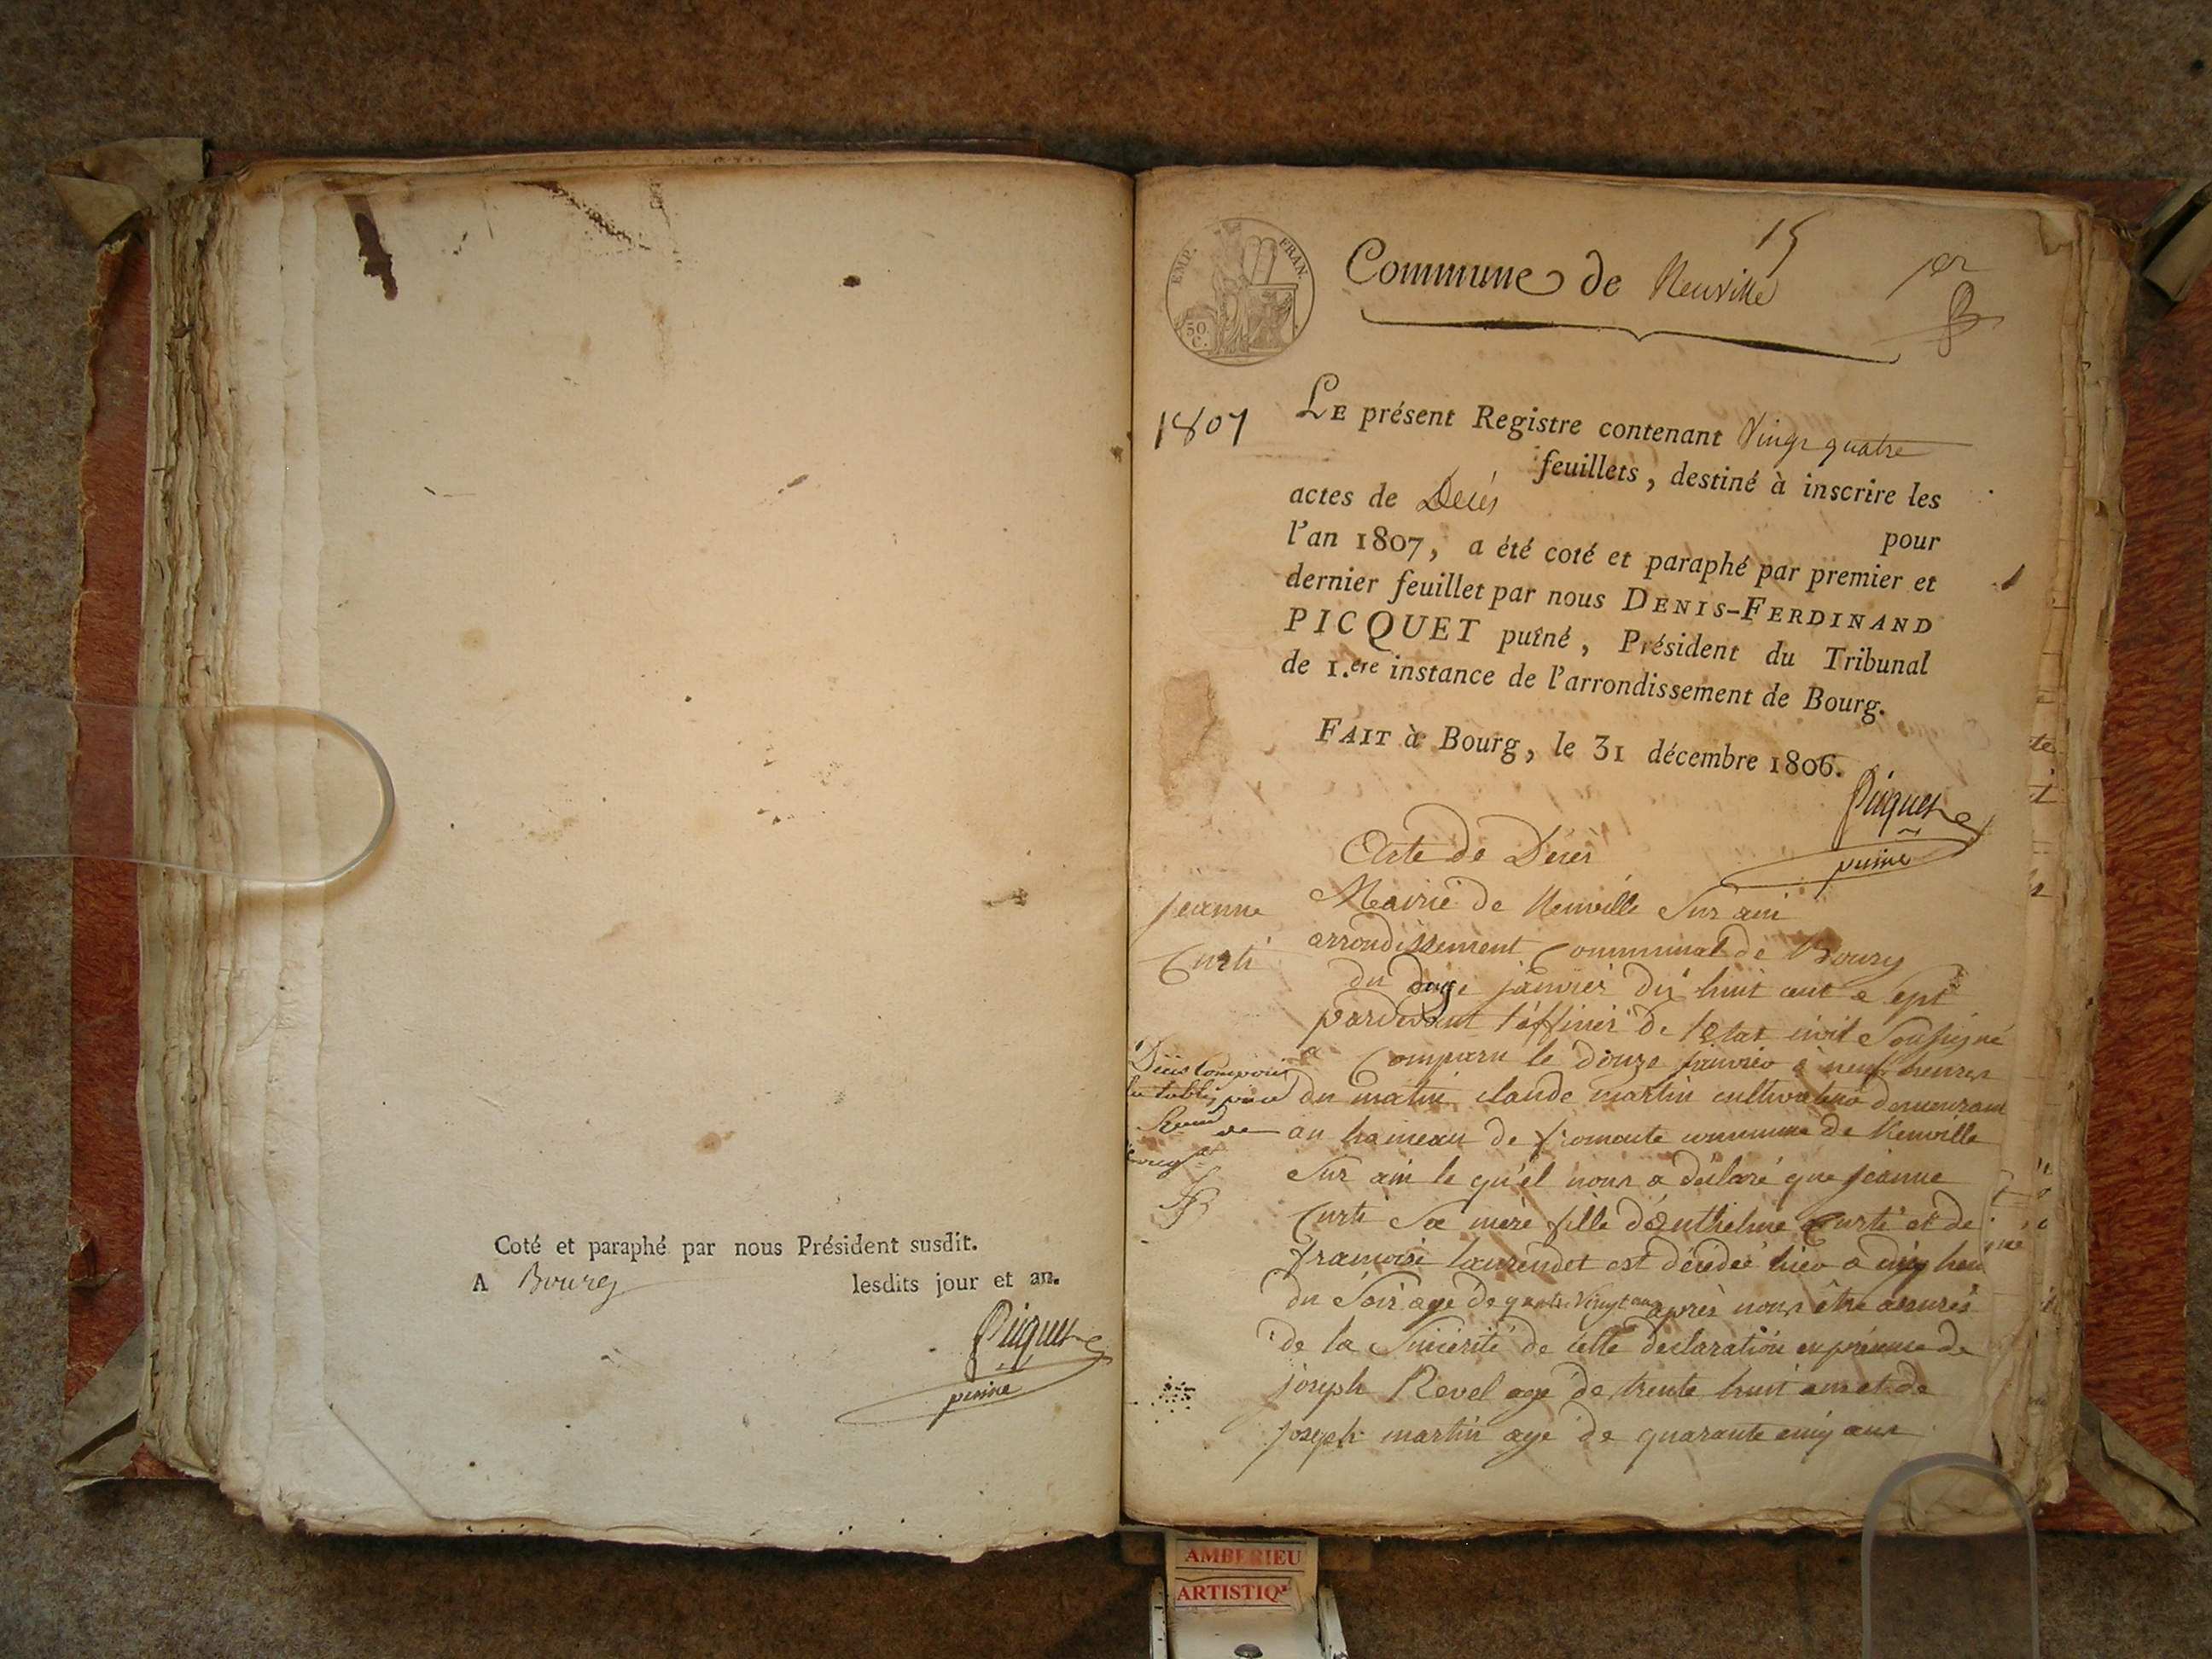 Coté et paraphé par nous Président susdit.
A Bourg lesdits jour et an.
Picquet
puiné
15
1er
EMP. FRAN.
50
C.
Commune de Neuville
1807
LE présent Registre contenant Vingt quatre
feuillets, destiné à inscrire les
actes de Décés
pour
l'an 1807, a été coté et paraphé par premier et
dernier feuillet par nous DENIS-FERDINAND
PICQUET puîné, Président du Tribunal
de 1.ere instance de l'arrondissement de Bourg.
FAIT à Bourg, le 31 décembre 1806.
Picquet
puiné
Acte de Décés
jeanne
Curti
Mairie de Neuville Sur ain
arrondissement Communal de Bourg
du janvier dix huit cent e sept
pardevant l'officier de l'Etat civil Soussigné
a Comparu le douze janvier à neuf heures
du matin claude martin cultivateur demeurant
au hameau de commune de Neuville
Sur ain le qu'el nous a déclaré que jeanne
Curti Sa mere fille d'Anthelme Curti et de
francoise laurendet est décédée hier a cinq heu
du Soir agé de quatre Vingt ans après nous être assurés
de la Sincerité de cette declaration en présence de
joseph Revel agé de trente huit ans et de
joseph martin agé de quarante cinq ans
AMBERIEU
ARTISTIQ